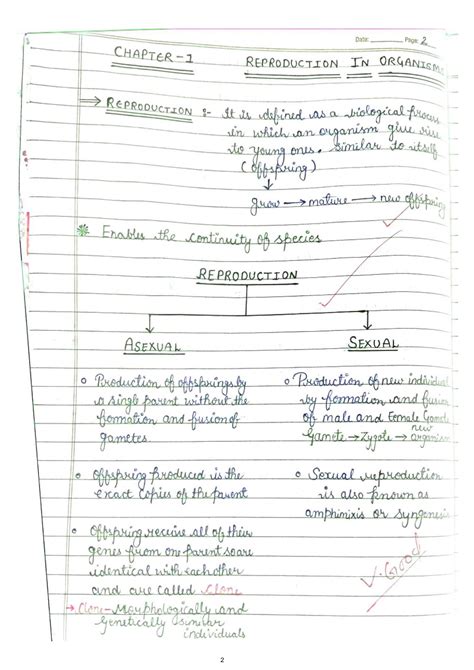 Date: Page: 2
CHAPTER-1 REPRODUCTION IN ORGANISMS
⇒ REPRODUCTION :- It is defined as a biological process
in which an organism give rise
to young ones. similar to itself
(offspring)
↓
grow → mature → new offspring
* Enables the continuity of species
REPRODUCTION
ASEXUAL SEXUAL
o Production of offsprings by
a single parent without the
formation and fusion of
gametes.
o Offspring produced is the
exact copies of the parent
o Offspring receive all of their
genes from one parent so are
identical with each other
and are called Clone
→ Clone - Morphologically and
Genetically similar
individuals
o Production of new individual
by formation and fusion
of male and Female Gamete
Gamete → Zygote → new organism
o Sexual reproduction
is also known as
amphimixis or syngenesis
V. Good
2